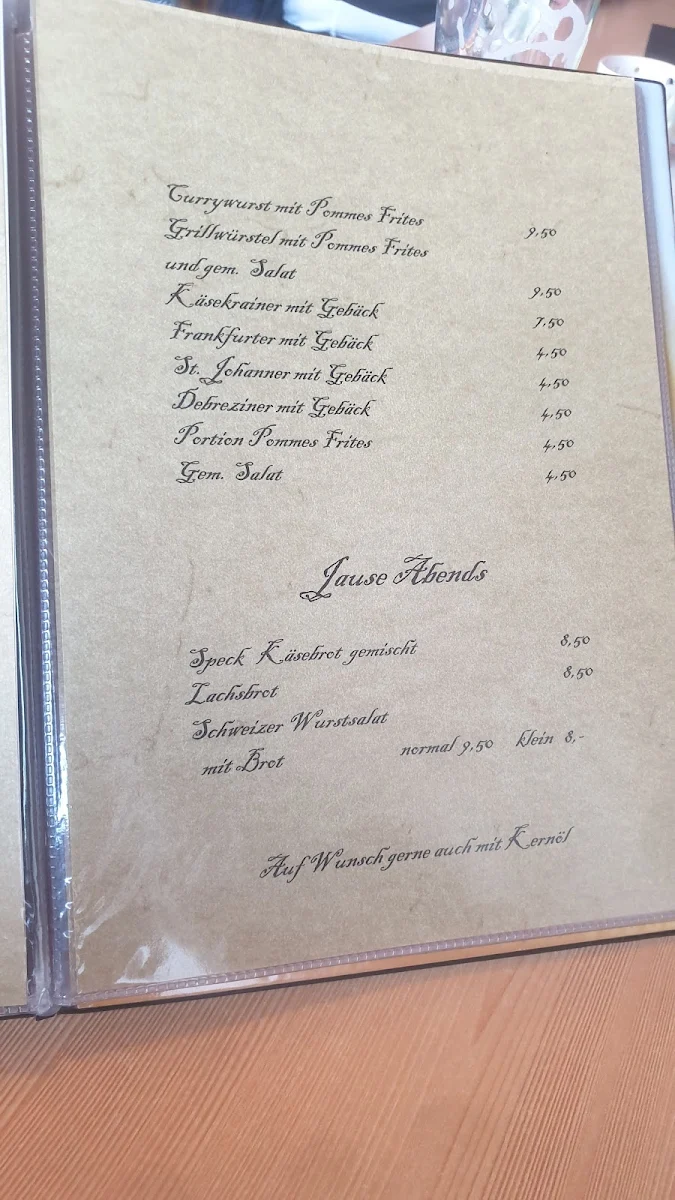 Currywurst mit Pommes Frites 9,50
Grillwürstel mit Pommes Frites
und gem. Salat 9,50
Käsekrainer mit Gebäck 7,50
Frankfurter mit Gebäck 4,50
St. Johanner mit Gebäck 4,50
Debreziner mit Gebäck 4,50
Portion Pommes Frites 4,50
Gem. Salat 4,50
Jause Abends
Speck Käsebrot gemischt 8,50
Lachsbrot 8,50
Schweizer Wurstsalat
mit Brot normal 9,50 klein 8,-
Auf Wunsch gerne auch mit Kernöl